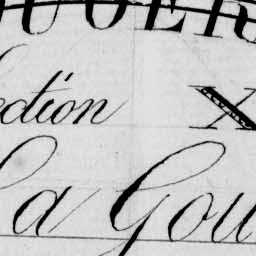 UGER
ection X
la Gou